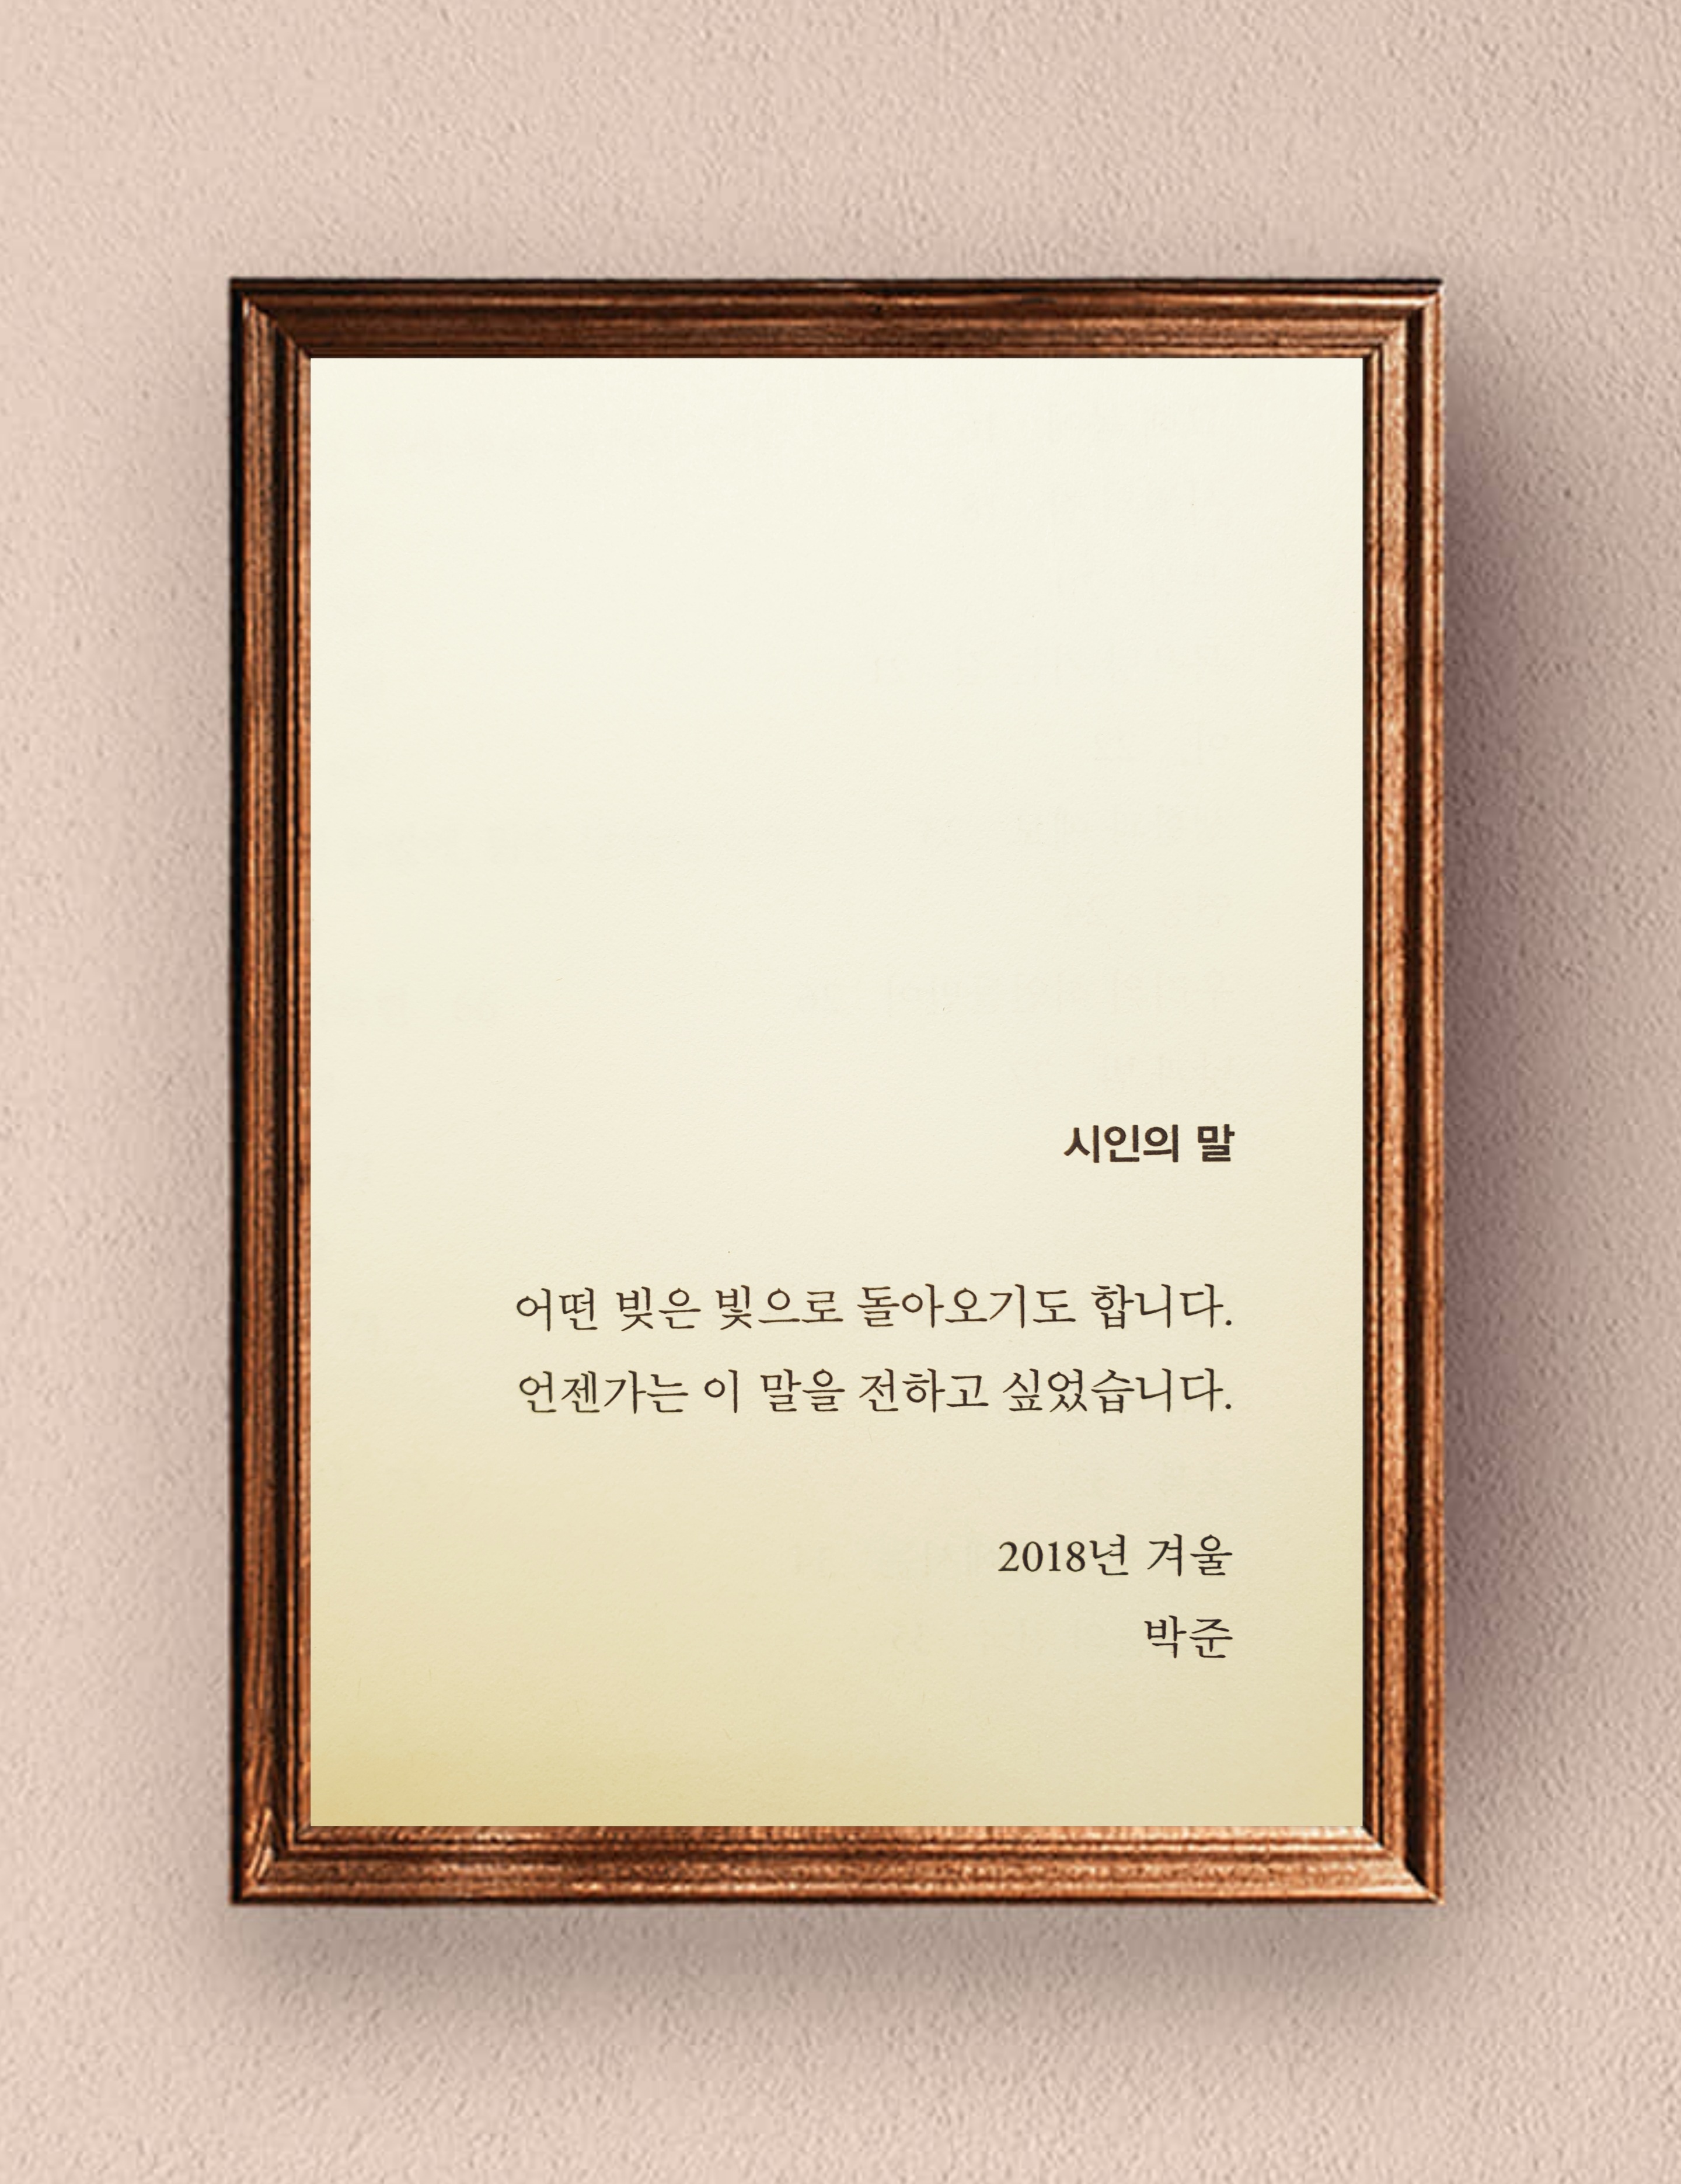 시인의 말
어떤 빚은 빛으로 돌아오기도 합니다.
언젠가는 이 말을 전하고 싶었습니다.
2018년 겨울
박준